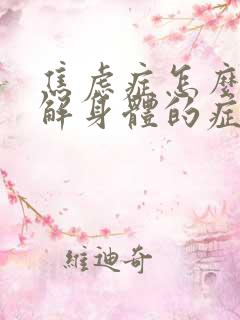 焦虑症怎麼
解身體的症
維迪奇